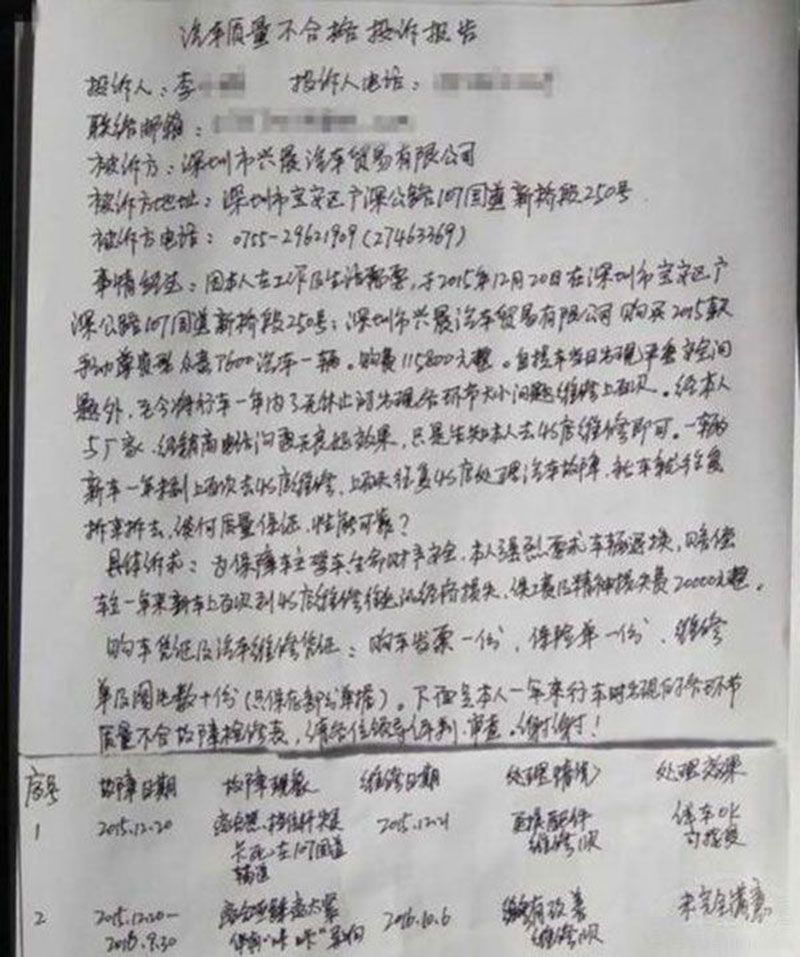 汽车质量不合格投诉报告
投诉人：李 投诉人电话：
联络邮箱：
被诉方：深圳市兴晟汽车贸易有限公司
被诉方地址：深圳市宝安区广深公路107国道新桥段250号
被诉方电话： 0755-29621909(27463369)
事情经过：因本人在工作及生活需要，于2015年12月20日在深圳市宝安区广
深公路107国道新桥段250号：深圳市兴晟汽车贸易有限公司购买2015款
手动尊贵型众泰T600汽车一辆。购费115800元整。自提车当日出现严重安全问
题外，至今将行车一年内了无休止的出现各环节大小问题维修上百次。经本人
与厂家、经销商电话沟通无良好效果，只是告知本人去4S店维修即可。一辆
新车一年未到上百次去4S店维修，上百天往复4S店处理汽车故障，
拆来拆去，使何质量保证，性能可靠？
具体诉求：为保障车主驾车生命财产安全，本人强烈要求车辆退换，赔偿
车主一年来新车上百次到4S店维修 经济损失，误工费及精神损失费20000元整。
购车凭证及汽车维修凭证：购车发票一份、保险单一份、维修
单及图片数十份（只保存部分单据）。下面是本人一年来行车时出现的各个环节
质量不合故障检修表，请各位领导评判、审查。谢谢！
序号 故障日期 故障现象 维修日期 处理情况 处理效果
1 2015.12.20 离合器、挡位杆失灵 2015.12.21 更换配件 停车OK
卡死，在107国道 维修1次 可接受
辅道
2 2015.12.20— 离合 太紧 2016.10.6 稍有改善 未完全满意
2016.9.30 伴有“咔咔”异响 维修1次